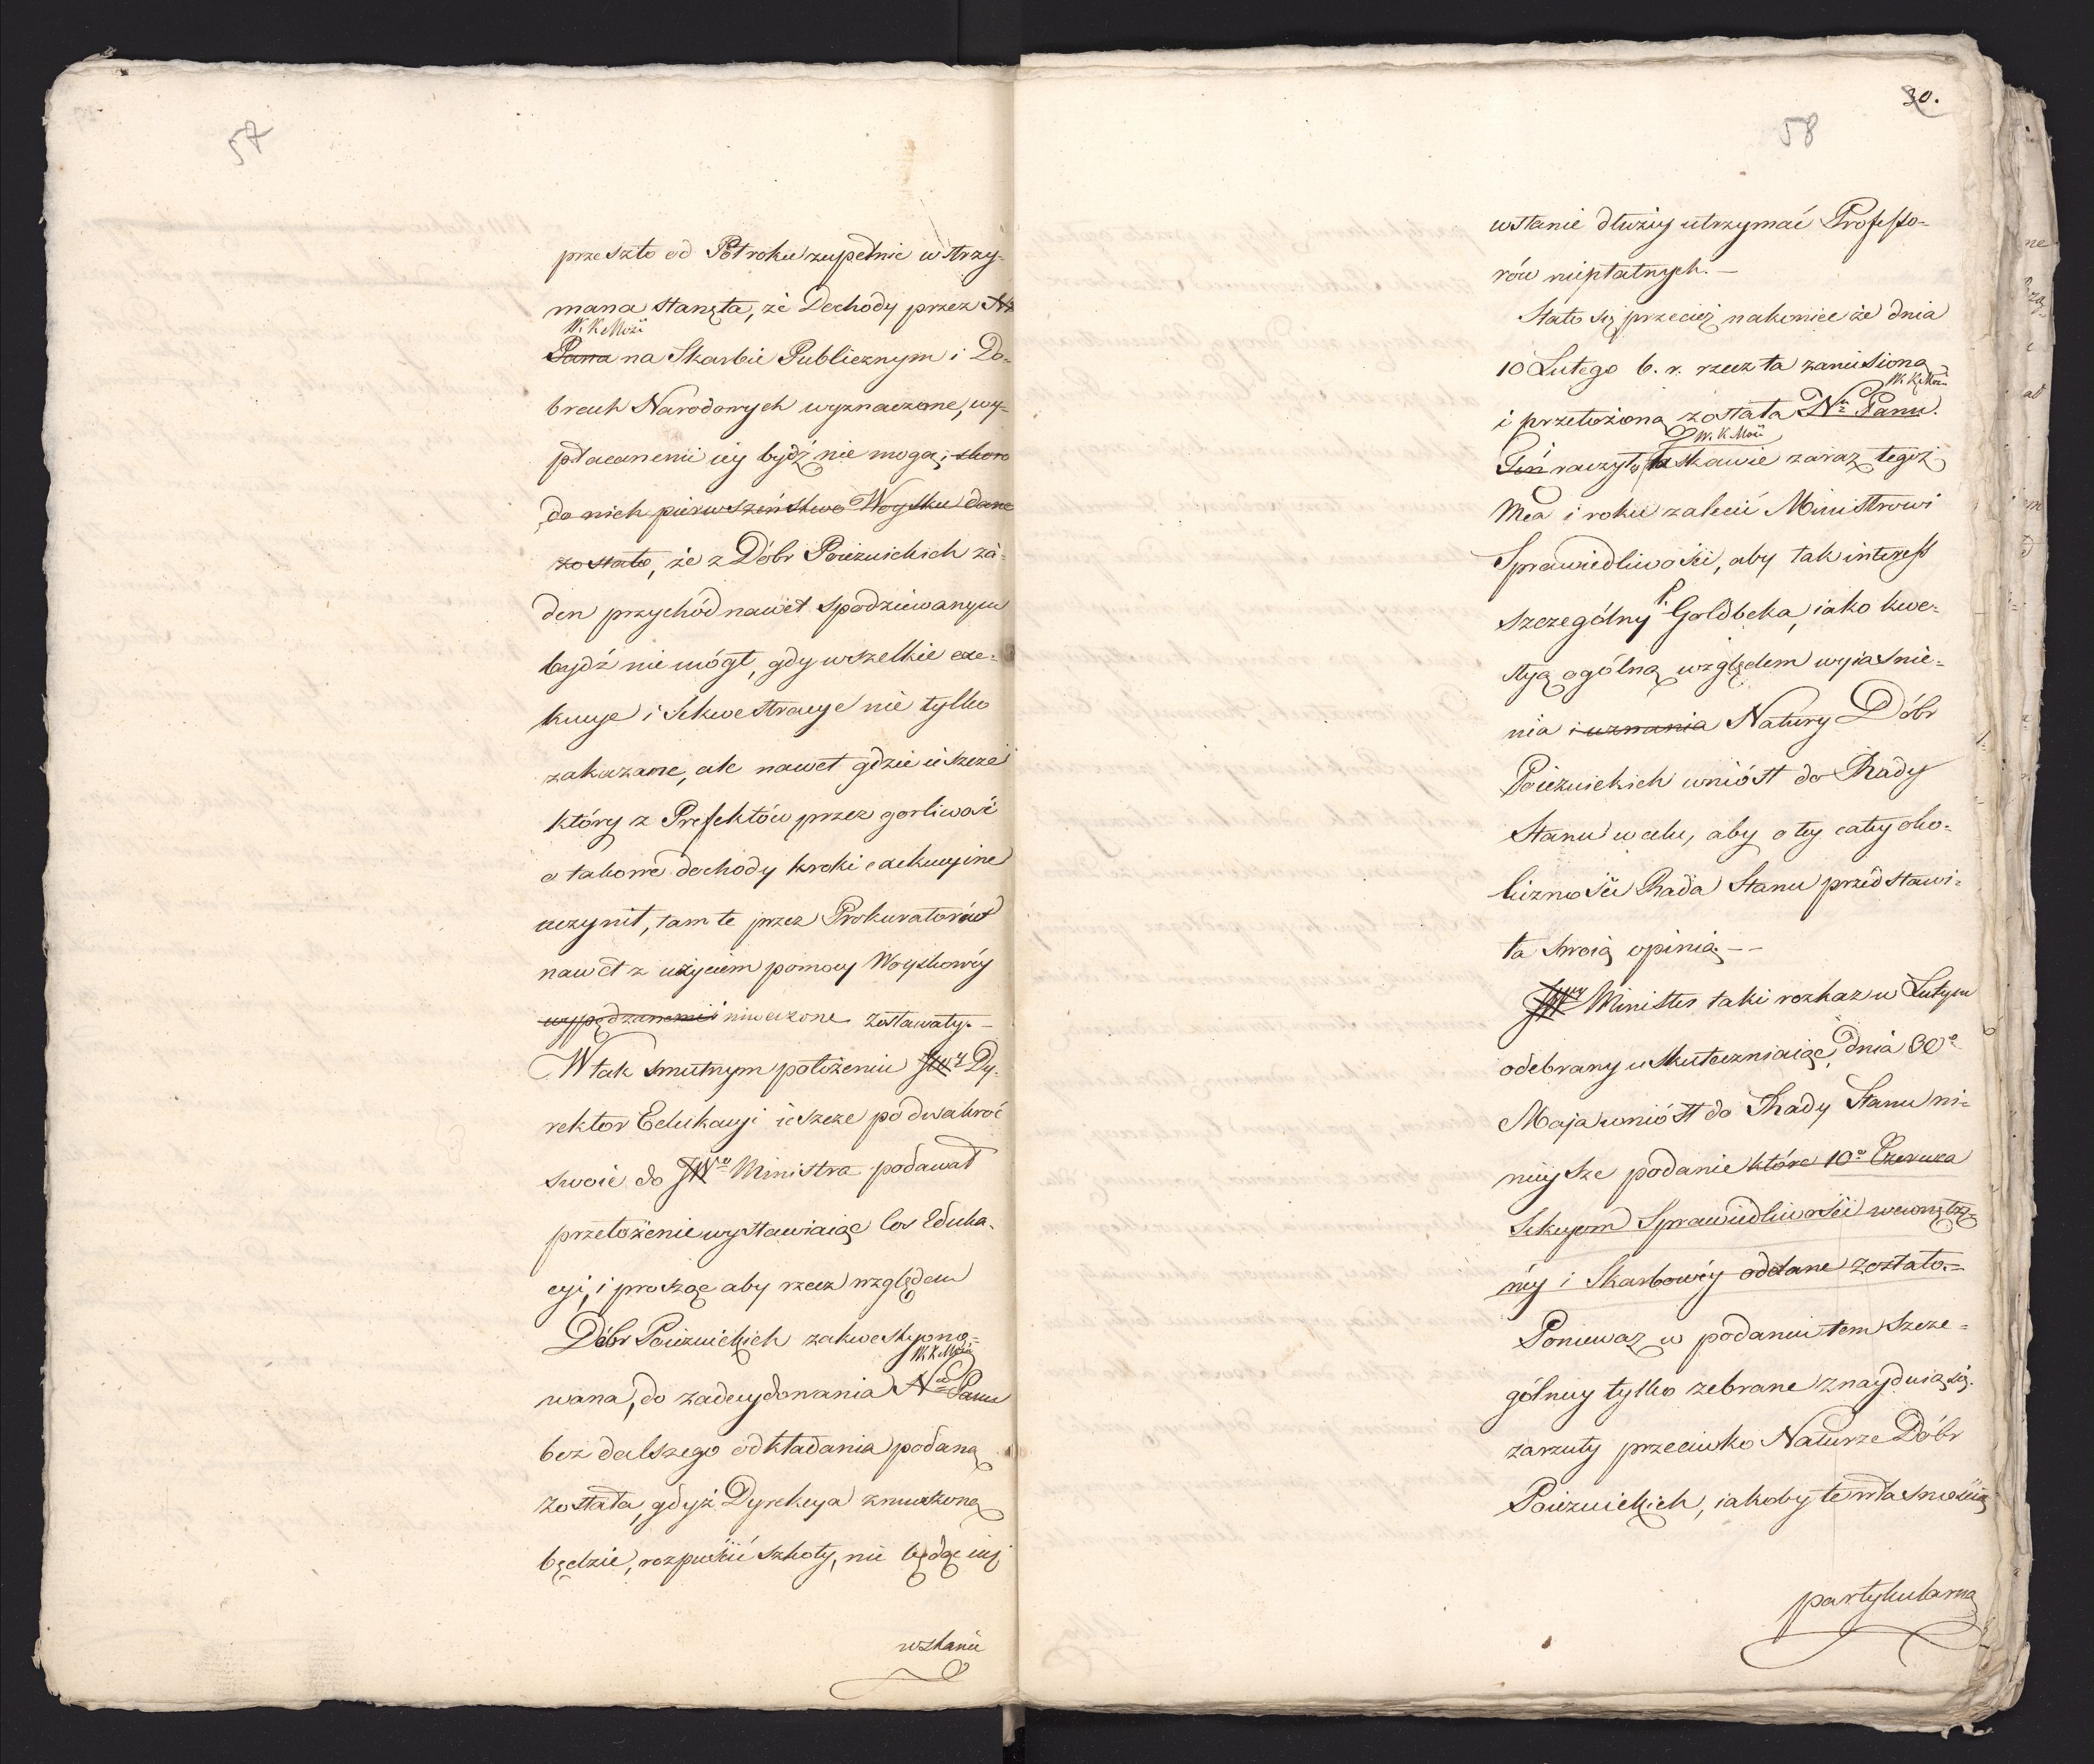 57
przeszło od Pół roku zupełnie wstrzy-
mana stanęła, że Dochody przez
W. K. Mość
Pana na Skarbie Publicznym i Do-
brach Narodowych wyznaczone, wy-
płacanemi iey bydź nie mogą, skoro
do nich pierwszeństwo Woysku dane
zostało, że z Dóbr Poiezuickich ża-
den przychód nawet spodziewanym
bydź nie mógł, gdy wszelkie exe-
kucye i Sekwestracye nie tylko
zakazane, ale nawet gdzie ieszcze
który z Prefektów przez gorliwość
o takowe dochody kroki exekucyine
uczynił, tam te przez Prokuratorów
nawet z użyciem pomocy Woyskowéy
wypędzanemi i niweczone zostawały. –
W tak smutnym położeniu JWy Dy-
rektor Edukacyi ieszcze po dwakroć
swoie do JWo Ministra podawał
przełożenie wystawiaiąc los Eduka-
cyi, i prosząc aby rzecz względem
Dóbr Poiezuickich zakwestyono-
W K Mości
wana, do zadecydowania Nu Panu
bez dalszego odkładania podana
została, gdyż Dyrekcya zmuszona
będzie, rozpuścić szkoły, nie będąc iuż
w stanie
30.
58
w stanie dłużey utrzymać Professo-
rów niepłatnych. –
Stało się przecież nakoniec że dnia
10 Lutego b. r. rzecz ta zaniesioną
W. K. Mci
i przełożoną została Nu Panu.
W. K. Mość
Ten raczył łaskawie zaraz tegoż
Mca i roku zalecić Ministrowi
Sprawiedliwości, aby tak interess
szczególny P. Goldbeka, iako kwe-
styą ogólną względem wyiaśnie-
nia i uznania Natury Dóbr
Poiezuickich wniósł do Rady
Stanu w celu, aby o tey całey oko-
liczności Rada Stanu przedstawi-
ła swoią opinią. – –
JWy Minister taki rozkaz w Lutym
odebrany uskuteczniaiąc, dnia 30o
Maja wniósł do Rady Stanu ni-
nieysze podanie które 10o Czerwca
Sekcyom Sprawiedliwości wewnętrz-
néy i Skarbowéy oddane zostało. –
Ponieważ w podaniu tem szcze-
gólniey tylko zebrane znayduią się
zarzuty przeciwko Naturze Dóbr
Poiezuickich, iakoby te własnością
partykularną